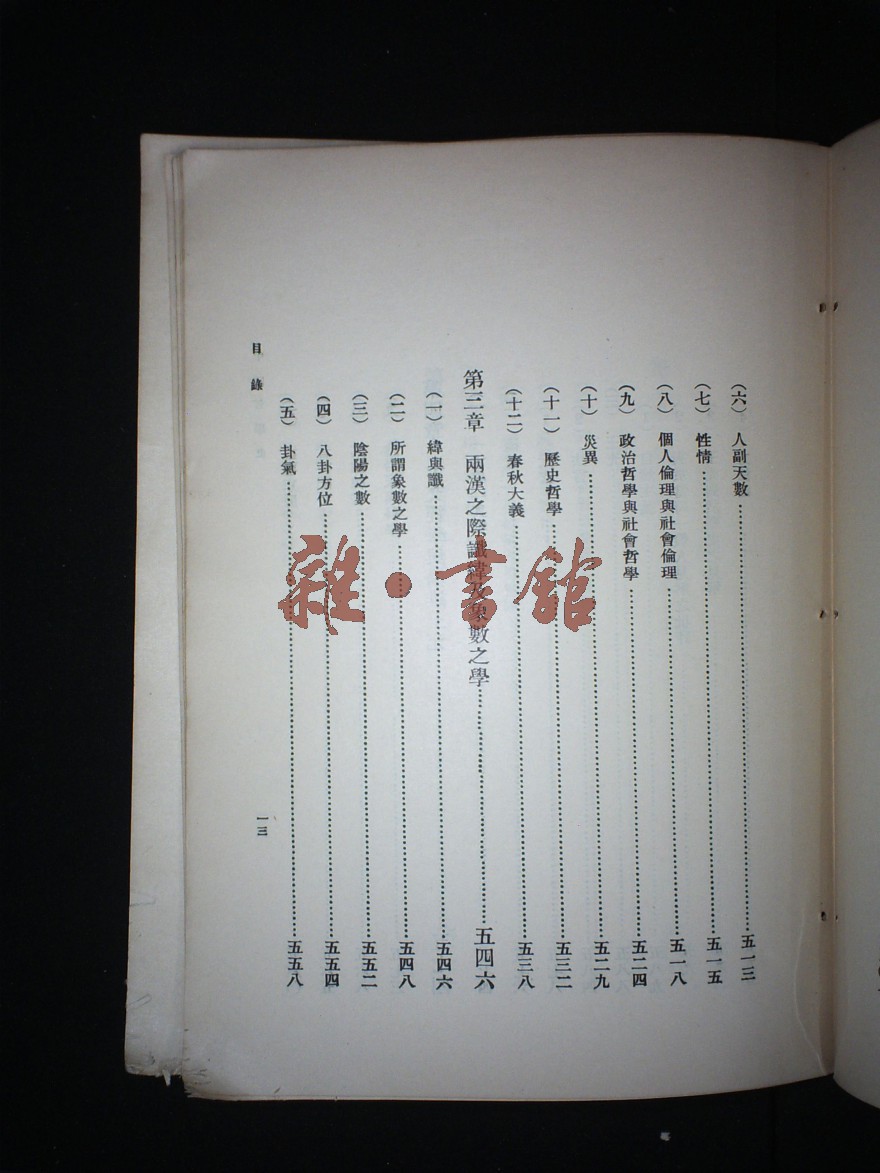 （六）　人副天數……五一三
（七）　性情……五一五
（八）　個人倫理與社會倫理……五一八
（九）　政治哲學與社會哲學……五二四
（十）　災異……五二九
（十一）　歷史哲學……五三二
（十二）　春秋大義……五三八
第三章　兩漢之際讖緯及象數之學……五四六
（一）　緯與讖……五四六
（二）　所謂象數之學……五四八
（三）　陰陽之數……五五二
（四）　八卦方位……五五四
（五）　卦氣……五五八
目錄
一三
雜・書館